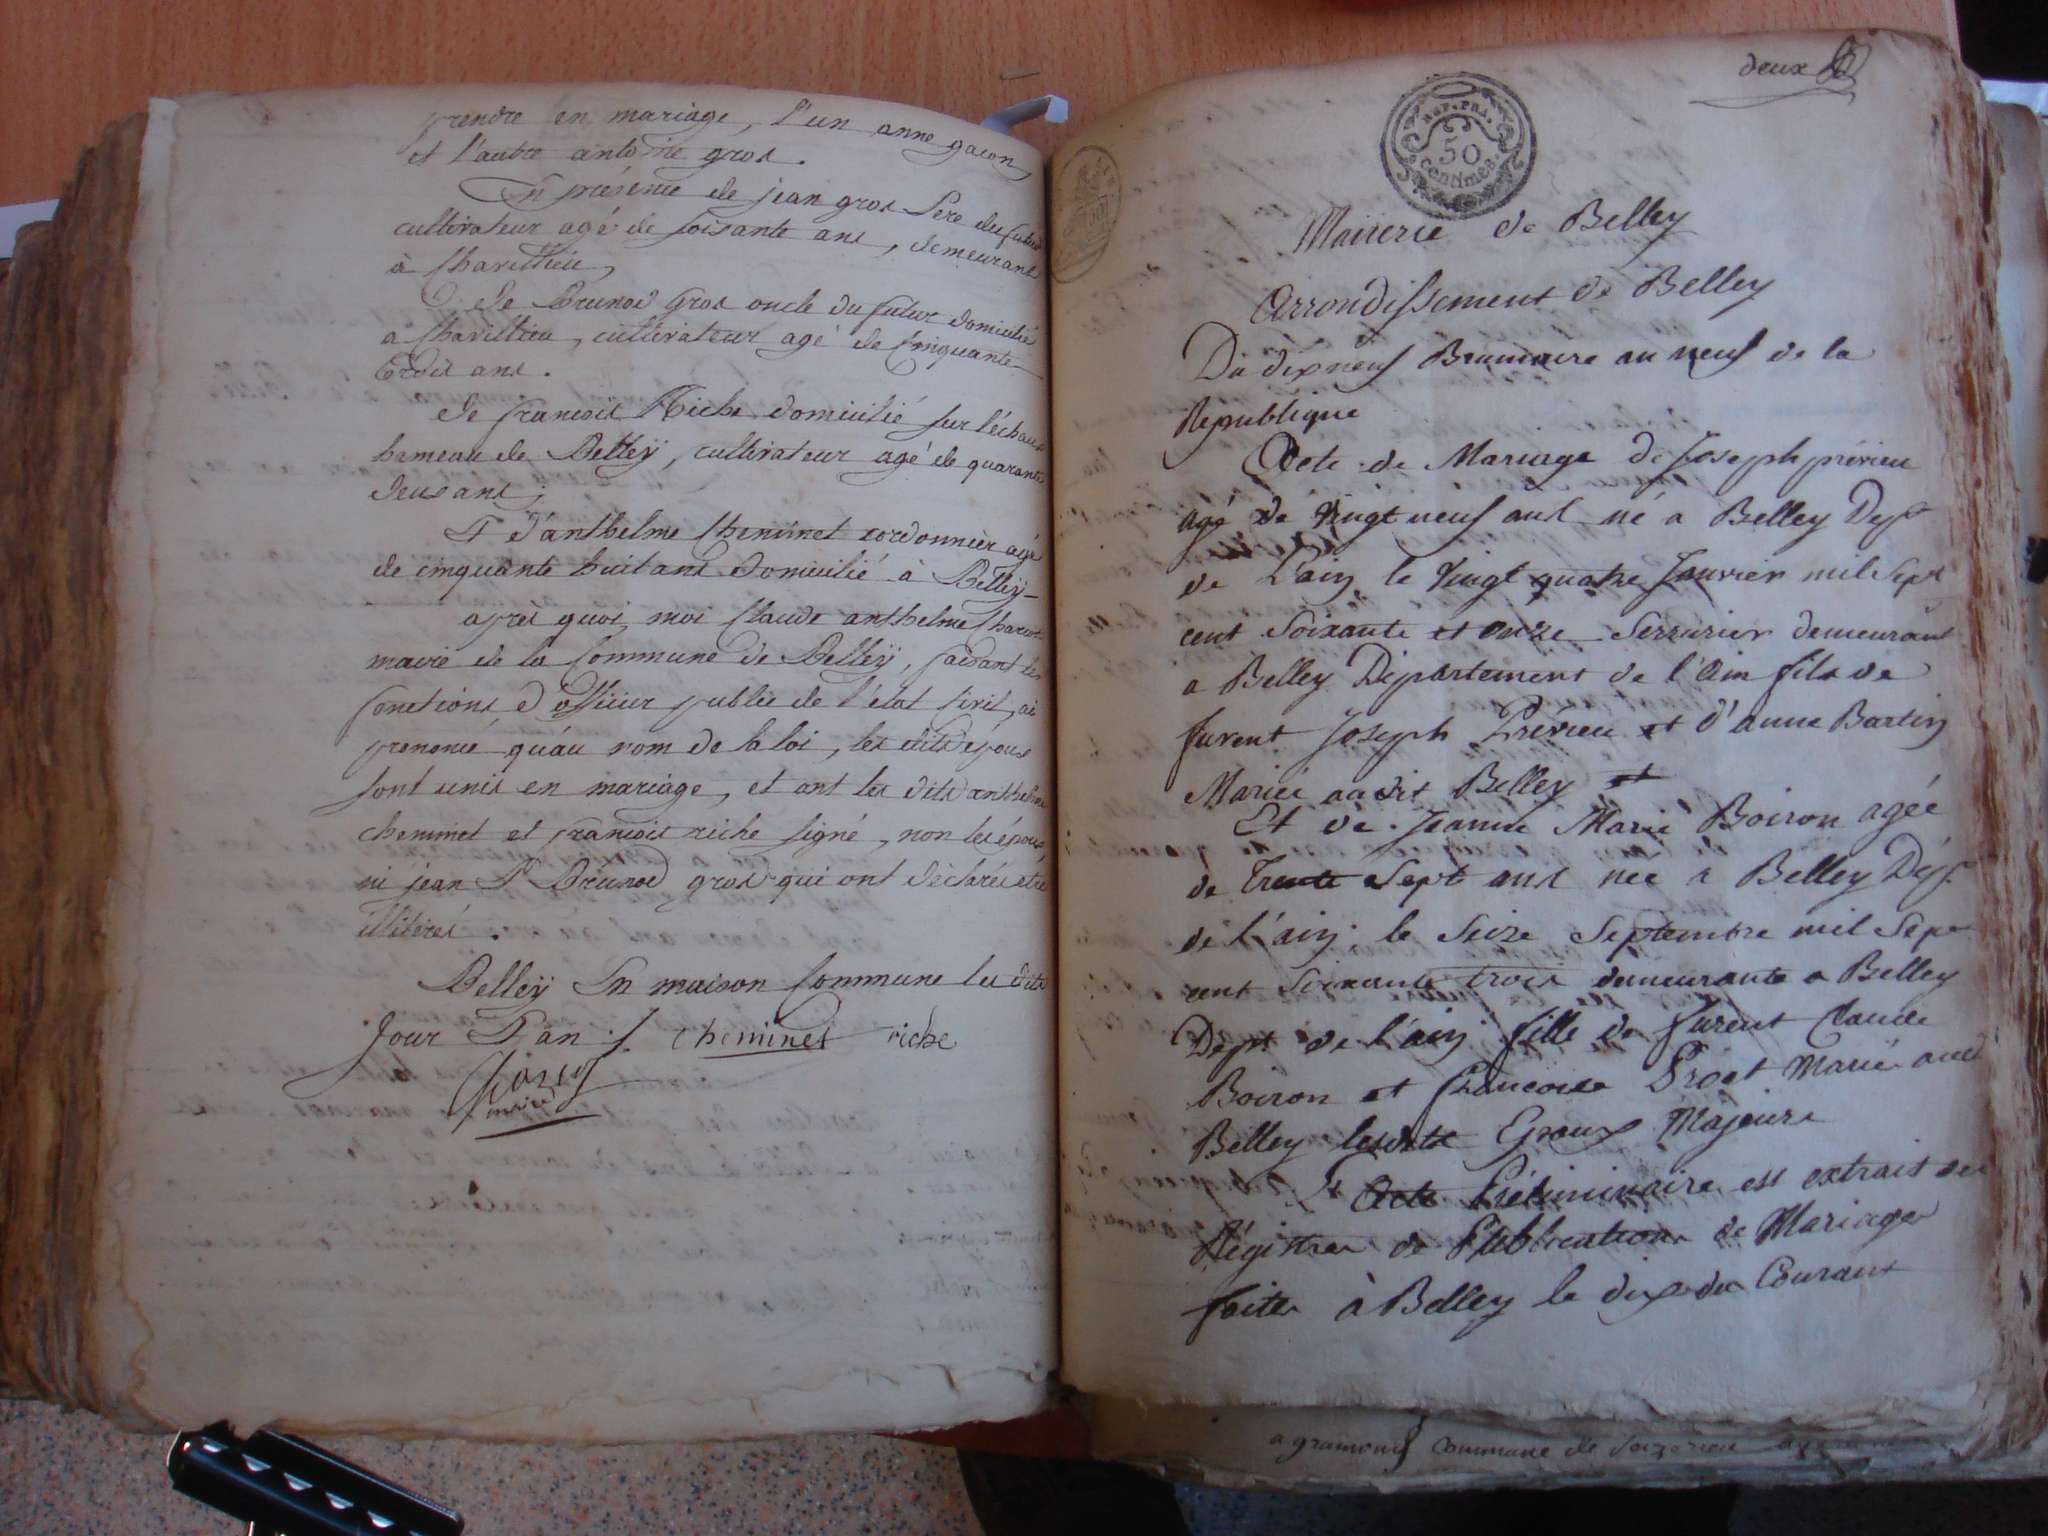 prendre en mariage, l'un anne gacon
et l'autre antoine gros.
En présence de jean gros Pere du futur
cultivateur agé de soisante ans, demeurant
à Charillieu,
de Brunod gros oncle du futur domicilié
a Charillieu, cultivateur agé de Cinquante
Et dix ans.
de francois Riche domicilié sur
hameau de Belleÿ, cultivateur agé de quarante
deux ans;
Et d'anthelme Cheminet cordonnier agé
de cinquante huit ans domicilié à Belleÿ
après quoi, moi Claude anthelme
maire de la Commune de Belleÿ, faisant les
fonctions d'officier public de l'état Civil, ai
prononcé qu'au nom de la loi, les dits époux
sont unis en mariage, et ont les dits anthelme
cheminet et francois riche signé, non les époux,
ni jean Et Brunod gros qui ont déclaré etre
illitérés.
Belleÿ En maison Commune les dits
Jour Et an. cheminet riche
maire
deux
REP. FRA.
50
Centimes.
Mairerie de Belley
Arrondissement de Belley
Du dix neuf Brumaire an neuf de la
Republique
Acte de Mariage de Joseph prérieu
agé de Vingt neuf ans né a Belley Dept
de L'ain le Vingt quatre Janvier mil Sept
cent Soixante et onze Serrurier demeurant
a Belley Département de l'Ain fils de
furent Joseph Prérieu et d'anne Bartin
Mariés audit Belley et
Et de Jeanne Marie Boiron agée
de Trente Sept ans née a Belley Dept
de l'ain le Seize Septembre mil Sept
cent Soixante trois demeurante a Belley
Dept de l'ain fille de furent Claude
Boiron et francoise Proet Mariés aud
Belley lesdits Epoux Majeurs
Acte Préliminaire est extrait des
Régistres de Publications de Mariages
faites à Belley le dix du Courant
commune de